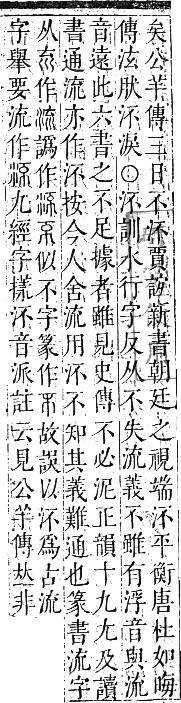 矣公羊傳三日不㳅賈誼新書朝廷之視端㳅平衡唐杜如晦
傳泫肰㳅淚○㳅訓水行字反从不失流義不雖有浮音與流
音遠此六書之不足據者雖見史傳不必泥正韻十九尤及讀
書通流亦作㳅按今人舍流用㳅不知其義難通也篆書流字
从㐬作流譌作𣻏不似不字篆作𣎴故誤以㳅為古流
字舉要流作𣻏九經字㨾㳅音派註云見公羊傳𠀤非